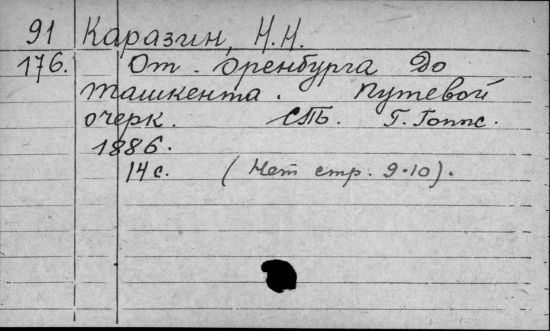 91 Каразин, Н.Н.
176. От Оренбурга до
Ташкента. Путевой
очерк. СПб. Г. Гоппе.
1886.
14 с. (Нет стр. 9-10).